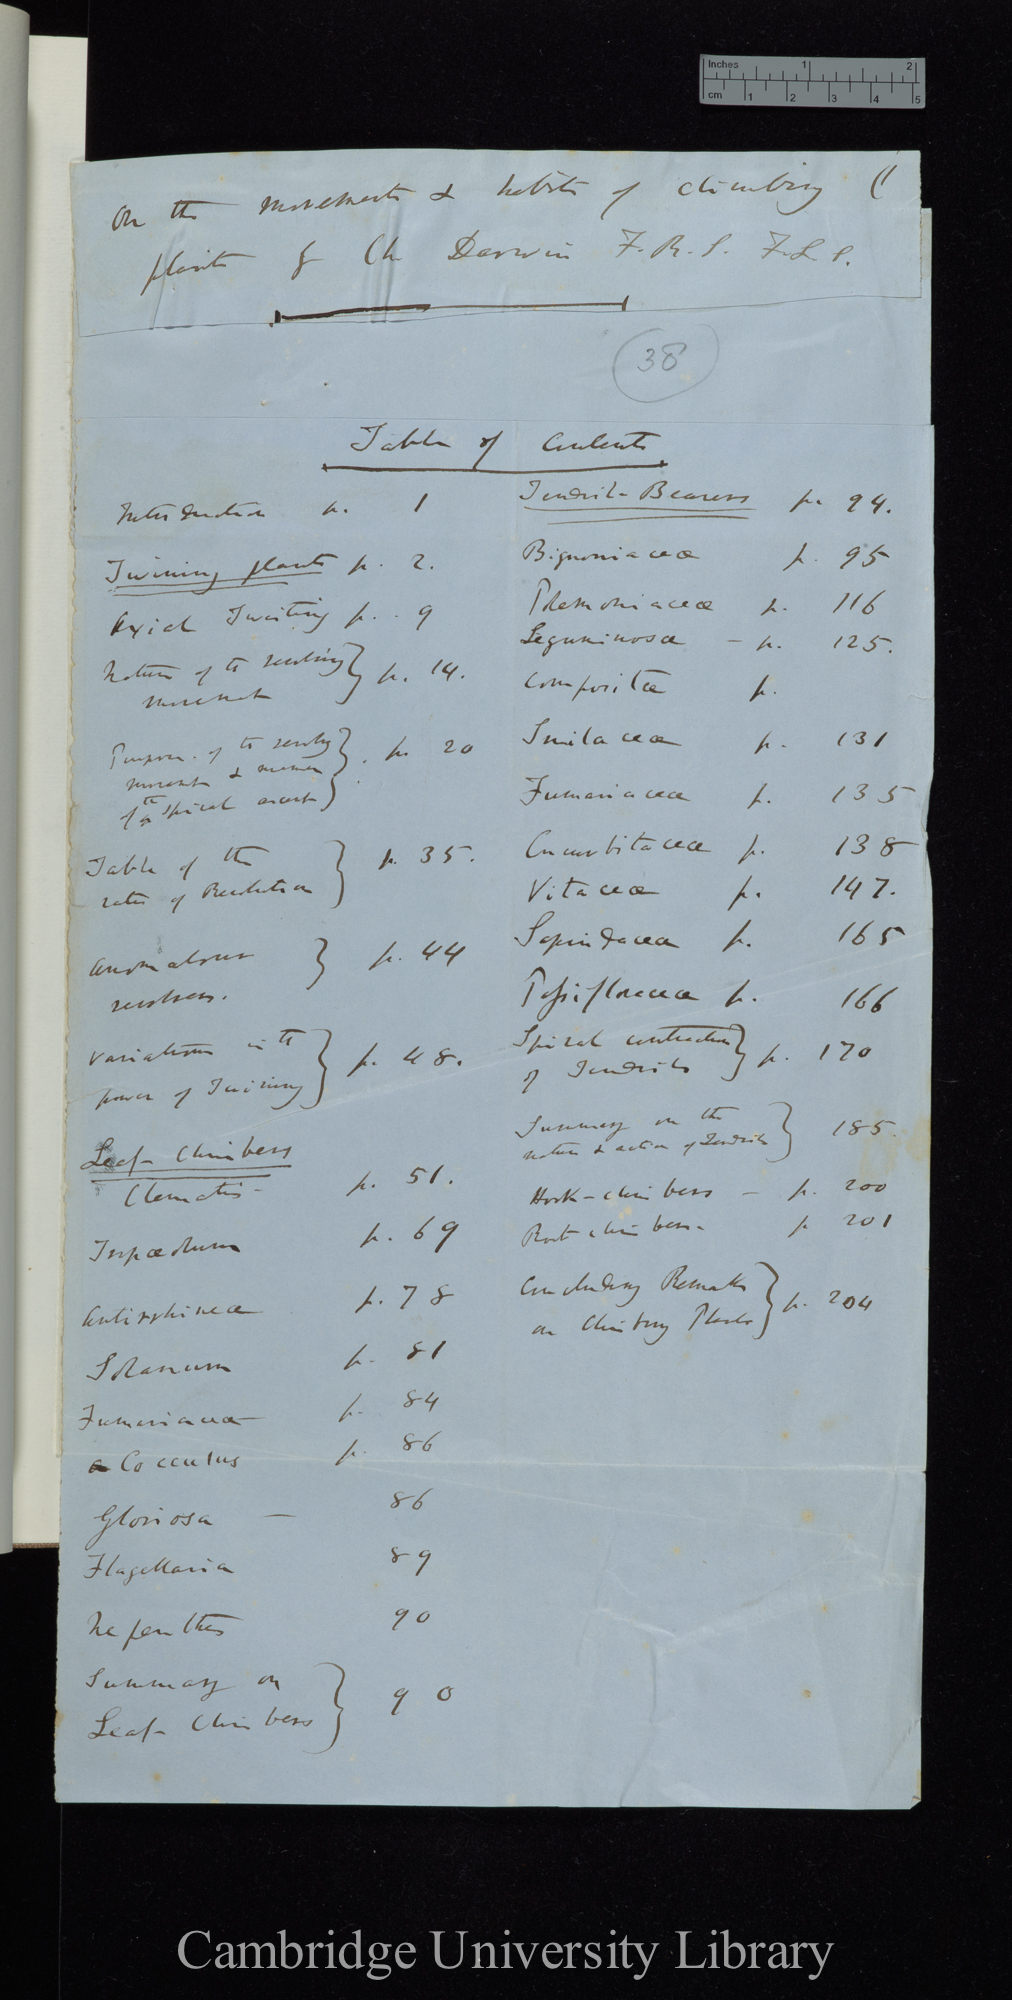 Inches 1 2
cm 1 2 3 4 5
On the movements & habits of climbing (1
plants by Ch. Darwin F.R.S. F.L.S.
38
Table of Contents
Introduction p. 1
Twining plants p. 2.
Axial Twisting p. 9
Nature of the revolving } p. 14.
movement
Purpose of the revolving } p. 20
movement & manner
of the spiral ascent
Table of the } p. 35.
rates of Revolution
Anomalous } p. 44
revolvers.
Variations in the } p. 48.
power of Twining
Leaf-Climbers
Clematis - p. 51.
Tropæolum p. 69
Antirrhineæ p. 78
Solanum p. 81
Fumariaceæ p. 84
Cocculus p. 86
Gloriosa - 86
Flagellaria 89
Nepenthes 90
Summary on } 90
Leaf-Climbers
Tendril-Bearers p. 94.
Bignoniaceæ p. 95
Polemoniaceæ p. 116
Leguminosæ - p. 125.
Compositæ p.
Smilaceæ p. 131
Fumariaceæ p. 135
Cucurbitaceæ p. 138
Vitaceæ p. 147.
Sapindaceæ p. 165
Passifloraceæ p. 166
Spiral contraction } p. 170
of Tendrils
Summary on the } 185.
nature & action of Tendrils
Hook-climbers - p. 200
Root climbers - p 201
Concluding Remarks } p. 204
on Climbing Plants
Cambridge University Library